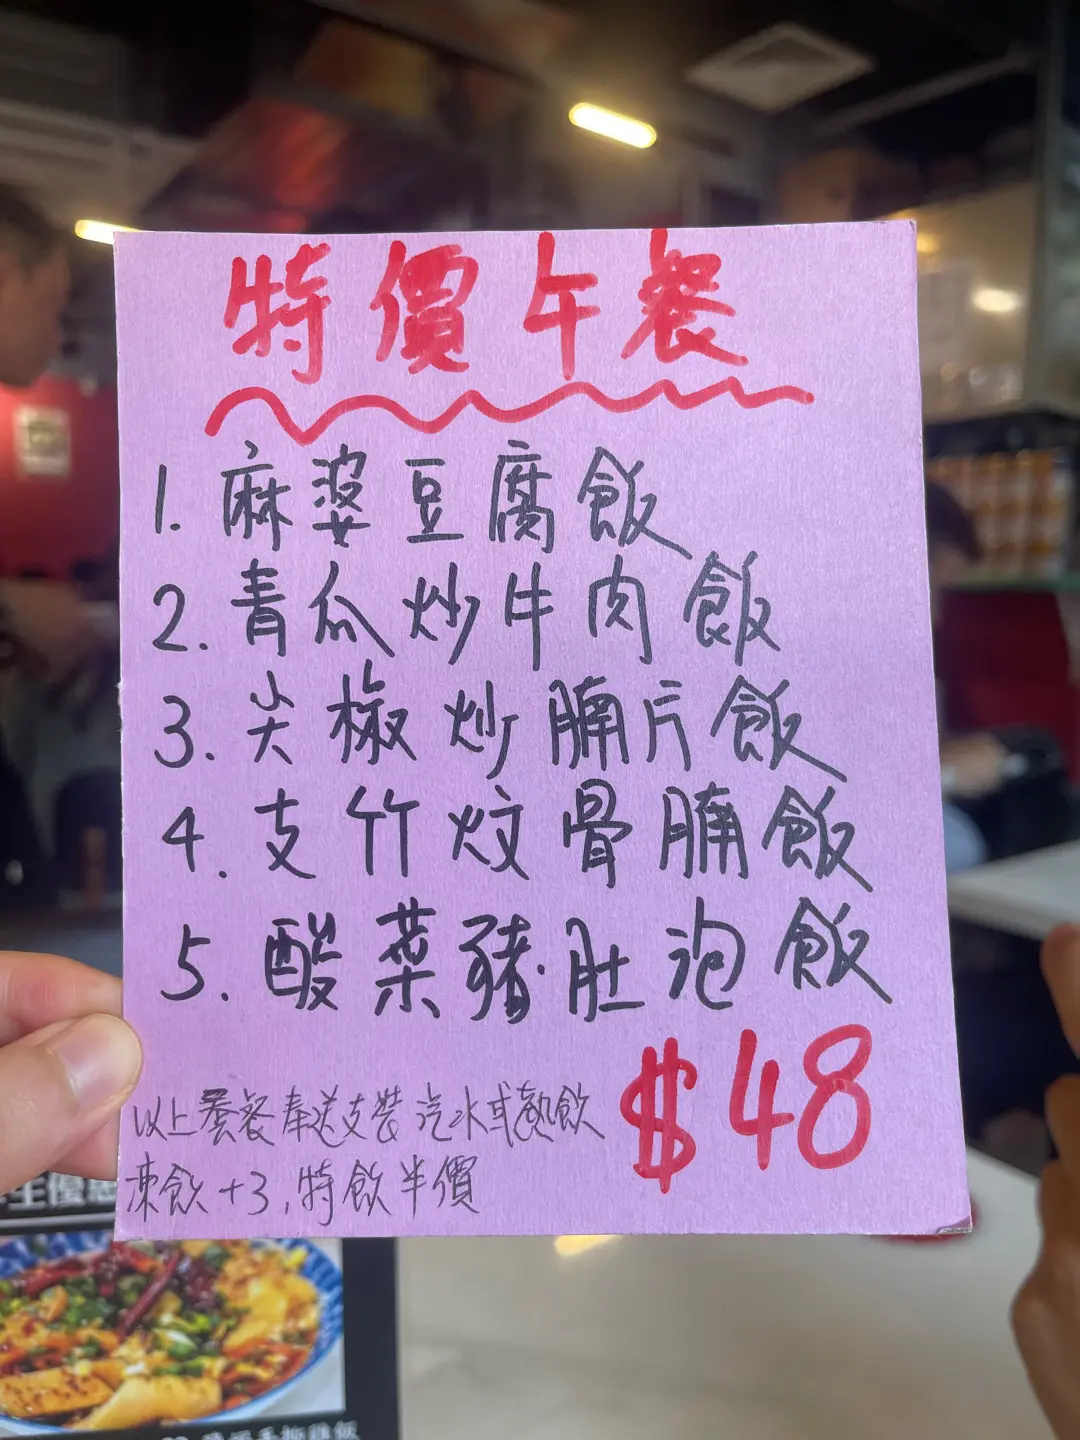 特價午餐
1. 麻婆豆腐飯
2. 青瓜炒牛肉飯
3. 尖椒炒腩片飯
4. 支竹炆骨腩飯
5. 酸菜豬肚泡飯
$48
以上套餐奉送支裝汽水或熱飲
凍飲+3,特飲半價
生優惠